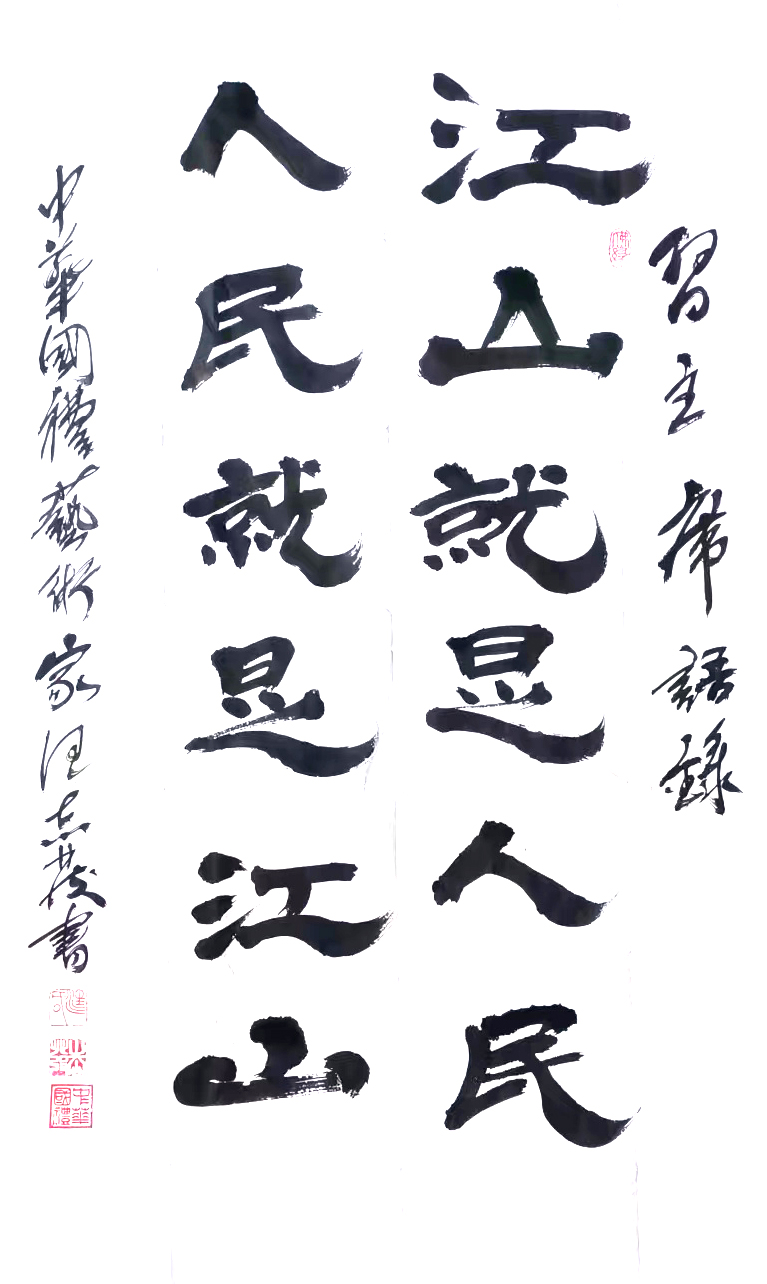 習主席語錄
江山就是人民
人民就是江山
中華國禮藝術家汪志書
中華國禮